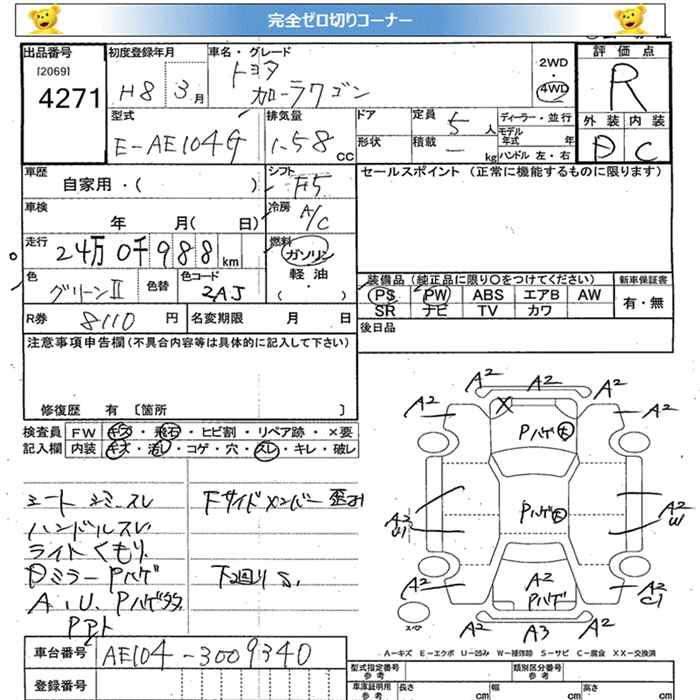 完全ゼロ切りコーナー
出品番号 初度登録年月 車名・グレード 評価点
[2069] 4271 H8 3月 トヨタ カローラワゴン 2WD 4WD R
型式 排気量 ドア 定員 5人 ディーラー・並行 外装 内装
E-AE104G 1.58 CC 形状 積載 - kg モデル年式 年 ハンドル 左・右 D C
車歴 自家用・( ) シフト F5 セールスポイント (正常に機能するものに限ります)
車検 年 月( 日) 冷房 A/C
走行 24万 0千 988 km 燃料 ガソリン 軽油 ( ・ )
色 グリーンII 色替 色コード 2AJ 装備品 (純正品に限り○をつけてください) 新車保証書
PS PW ABS エアB AW 有・無
SR ナビ TV カワ
R券 8110 円 名変期限 月 日 後日品
注意事項申告欄(不具合内容等は具体的に記入して下さい)
修復歴 有 [箇所 ]
検査員 FW キズ・飛石・ヒビ割・リペア跡・×要
記入欄 内装 キズ・汚レ・コゲ・穴・スレ・キレ・破レ
シート シミ、スレ Fサイドメンバー 歪み
ハンドルスレ
ライトくもり
Dミラー Pハゲ 下回り S、
A、U、Pハゲ多多
A2 A2 A2
A2 X A2
Pハゲ大
A2 Pハゲ大 A2
W
A2 A2 A2
Pハゲ C1
スペア A2 A3 A2
A-キズ E-エクボ U-凹み W-補修跡 S-サビ C-腐食 XX-交換済
車台番号 AE104-3009340
登録番号
型式指定番号 参考 類別区分番号 参考
車庫証明用 参考 長さ cm 幅 cm 高さ cm